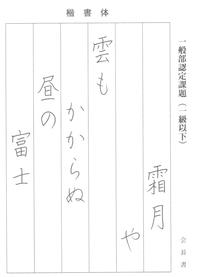 楷書体
一般部認定課題（一級以下）
会長書
霜月や
雲も
かからぬ
昼の
富士